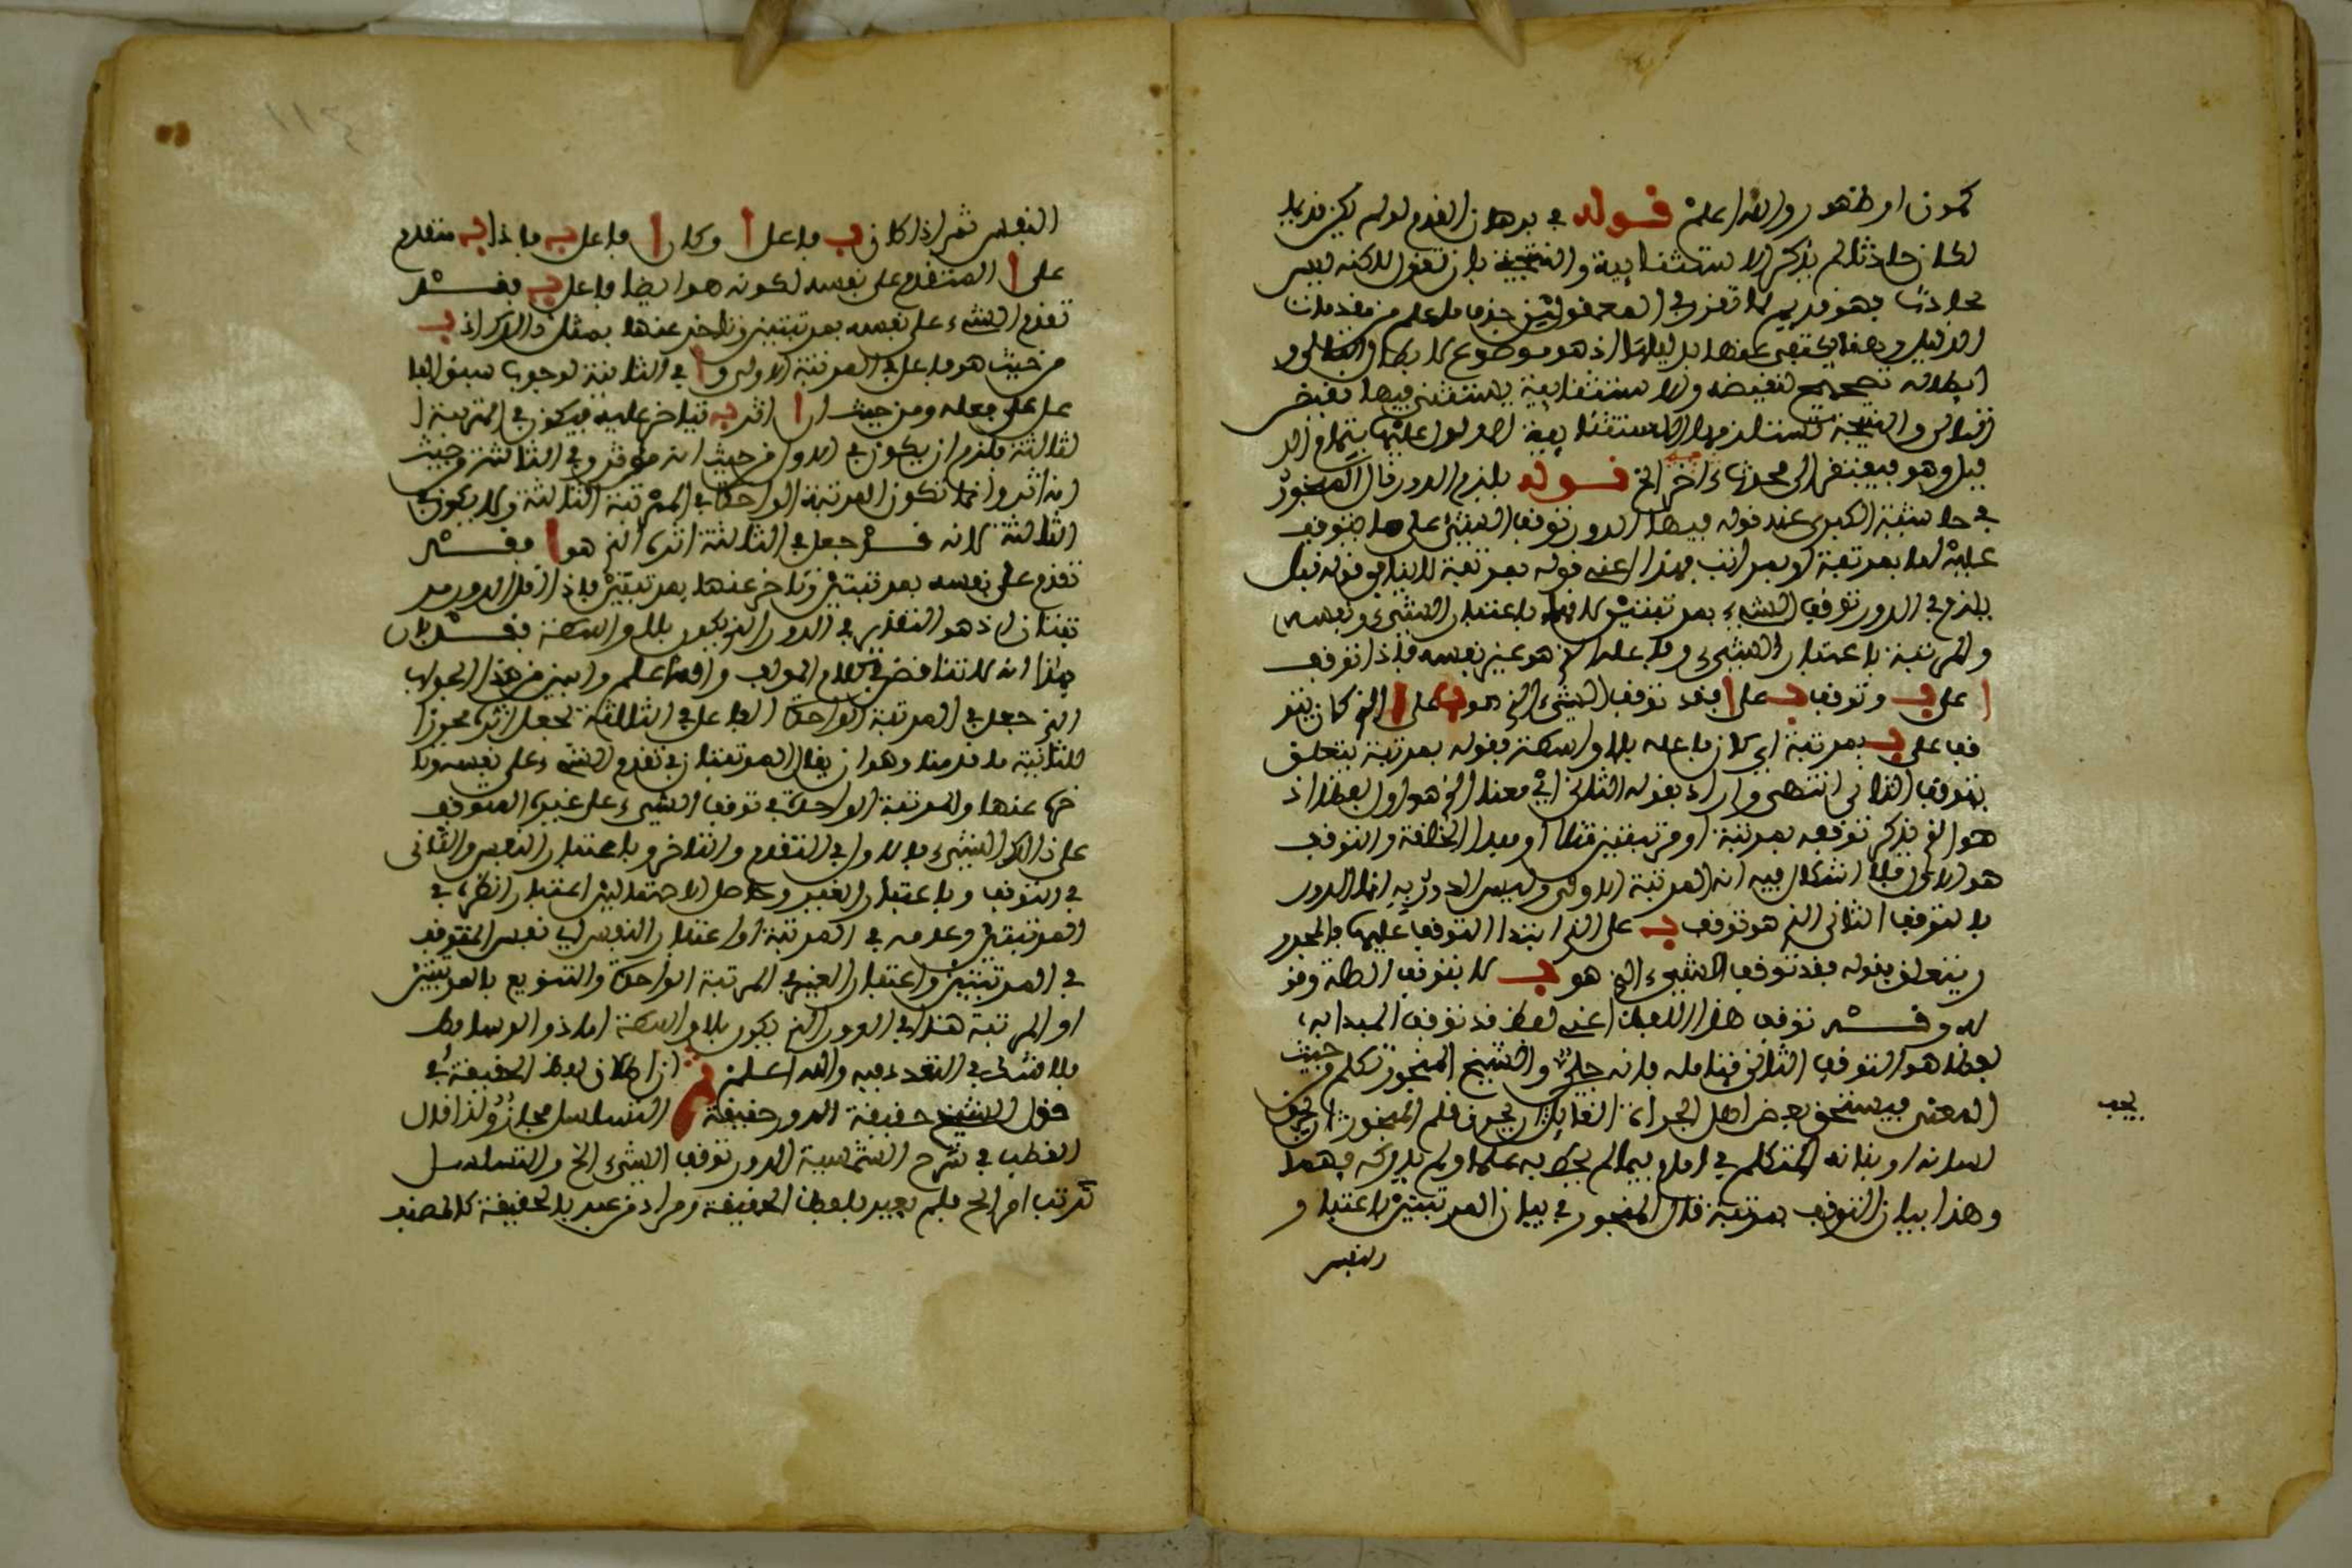 كمون او ظهور والله اعلم قوله في برهان القدم لو لم يكن قديما
لكان حادثا لم يذكر الاستثنائية والنتيجة بان تقول لاكنه ليس
بحادث فهو قديم لما تقرر في المعقول من حذف ما علم من مقدمات
الدليل وهنا يكتفى عنها بدليلها اذ هو موضوع لابطال التالي و
ابطاله تصحيح لنقيضه والاستثنائية يستثنى فيها نقيض
التالي والنتيجة تستلزمها الاستثنائية المدلول عليها بتمام الد
ليل وهو فيفتقر الى محدث اخر الخ قوله يلزم الدور قال المنجور
في حاشية الكبرى عند قوله فيها الدور توقف الشيء على ما يتوقف
عليه اما بمرتبة او بمراتب هذا اعني قوله بمرتبة لا ينافي قوله قبل
يلزم في الدور توقف الشيء بمرتبتين لانها باعتبار الشيء ونفسه
والمرتبة باعتبار الشيء وفاعله الذي هو غير نفسه فاذا توقف
ا على ب وتوقف ب على ا فقد توقف الشيء الذي هو ب على ا الذي كان يتو
قف على ب بمرتبة اي كان فاعله بلا واسطة فقوله بمرتبة يتعلق
بتوقف الثاني انتهى واراد بقوله الثاني اي معنى الذي هو اول لفظا اذ
هو الذي يذكر توقفه بمرتبة او مرتبتين مثلا او مبدا الحلقة والتوقف
هو الاول فلا اشكال فيه انه المرتبة الاولى وليس الدور به انما الدور
بالتوقف الثاني الذي هو توقف ب على الذي ابتدا التوقف عليها فالمجرور
يتعلق بقوله فقد توقف الشيء الذي هو ب لا بتوقف الصلة وفو
له وقد توقف هذا اللفظ اعني لفظ قد توقف المبدا به
لفظا هو التوقف الثاني فتامله فانه جلي والشيخ المنجور تكلم من حيث
المعنى فيستحق بعض اهل الجراءة القايل بحرف قلم المنجور ان يجف
لسانه او بنانه المتكلم في امام بما لم يحط به علما ولم يدركه فهما
وهذا بيان التوقف بمرتبة قال المنجور في بيان المرتبتين باعتبار
النفس
يجب
النفس ثم اذا كان ب فاعل ا وكان ا فاعل ب فاذا ب متقدم
على ا المتقدم على نفسه لكونه هو ايضا فاعل ب فقد
تقدم الشيء على نفسه بمرتبتين وتاخر عنها بمثل ذلك اذ ب
من حيث هو فاعل في المرتبة الاولى و ا في الثانية لوجوب سبق الفا
عل على فعله ومن حيث ان ا اثر به تتاخر عليه فيكون في المرتبة ا
لثالثة فلزم ان يكون في الاول من حيث انه مؤثر وفي الثالثة من حيث
انه اثر وانما تكون المرتبة الواحدة في المرتبة الثالثة ولا يكون في
الثالثة لانه قد جعل في الثانية اثره الذي هو ا فقد
تقدم على نفسه بمرتبتين وتاخر عنها بمرتبتين فاذا اقل الدور مر
تبتان اذ هو التقدير في الدور الذي يكون بلا واسطة فقد بان
بهذا انه لا تناقض في كلام المؤلف والله اعلم وابين من هذا الجواب
الذي جعل في المرتبة الواحدة الفاعل في الثالثة بجعل اثره محوزا
للثانية ما قدمنا وهو ان يقال المرتبتان في تقدم الشيء على نفسه وتا
خره عنها والمرتبة الواحدة في توقف الشيء على غيره المتوقف
على ذلك الشيء فالاول في التقدم والتاخر وباعتبار النفس والثاني
في التوقف وباعتبار الغير وحاصل الاحتمالين اعتبار انظره في
المرتبتين وعدمه في المرتبة او اعتبار النفس اي نفس المتوقف
في المرتبتين واعتبار الغير في المرتبة الواحدة والتنويع بالمرتبتين
او المرتبة هنا في الدور الذي يكون بلا واسطة اما ذو الوسائط
فلا شك في التعدد فيه والله اعلم ان اطلاق لفظ الحقيقة في
قول الشيخ حقيقة الدور حقيقة التسلسل مجاز ولذا قال
القطب في شرح الشمسية الدور توقف الشيء الخ والتسلسل
ترتب امر الخ فلم يعبر بلفظ الحقيقة ومراد من عبر بالحقيقة كالمصنف